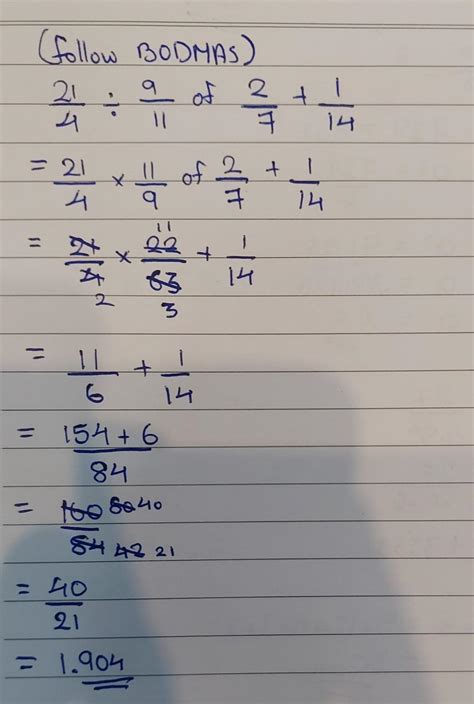 (follow BODMAS)
21/4 ÷ 9/11 of 2/7 + 1/14
= 21/4 × 11/9 of 2/7 + 1/14
= 21/4 2 × 11 22/63 3 + 1/14
= 11/6 + 1/14
= 154 + 6/84
= 160 80 40/84 42 21
= 40/21
= 1.904